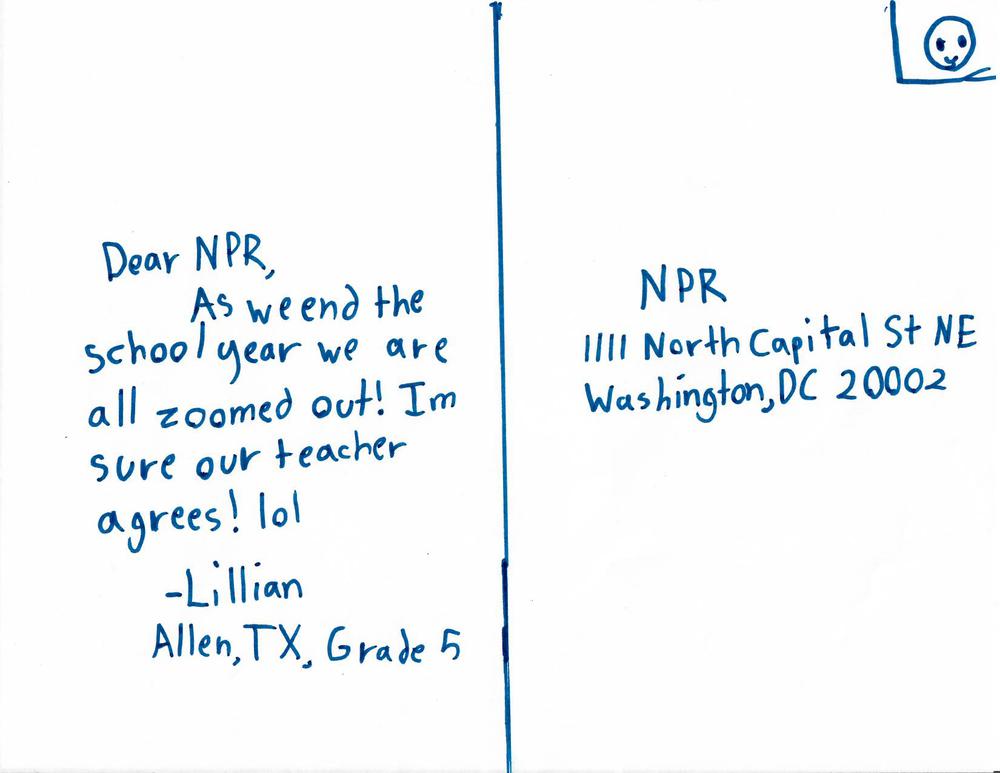 Dear NPR,
As we end the
school year we are
all zoomed out! Im
sure our teacher
agrees! lol
-Lillian
Allen, TX, Grade 5
NPR
1111 North Capital St NE
Washington, DC 20002